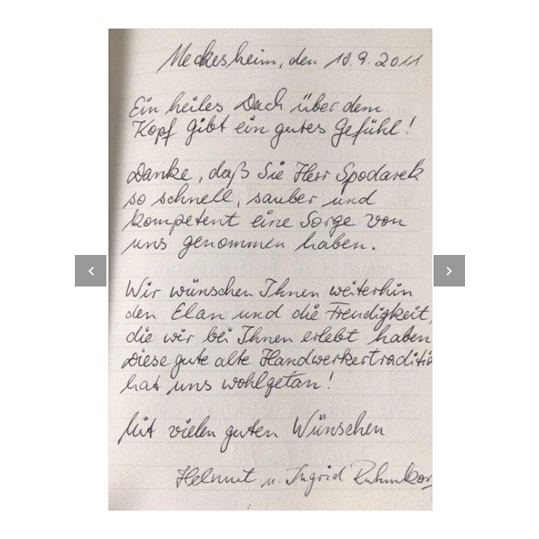 Meckesheim, den 18.9.2011
Ein heiles Dach über dem
Kopf gibt ein gutes Gefühl!
Danke, daß Sie Herr Spodarek
so schnell, sauber und
kompetent eine Sorge von
uns genommen haben.
Wir wünschen Ihnen weiterhin
den Elan und die Freudigkeit,
die wir bei Ihnen erlebt haben
Diese gute alte Handwerkertraditi
hat uns wohlgetan!
Mit vielen guten Wünschen
Helmut u. Ingrid